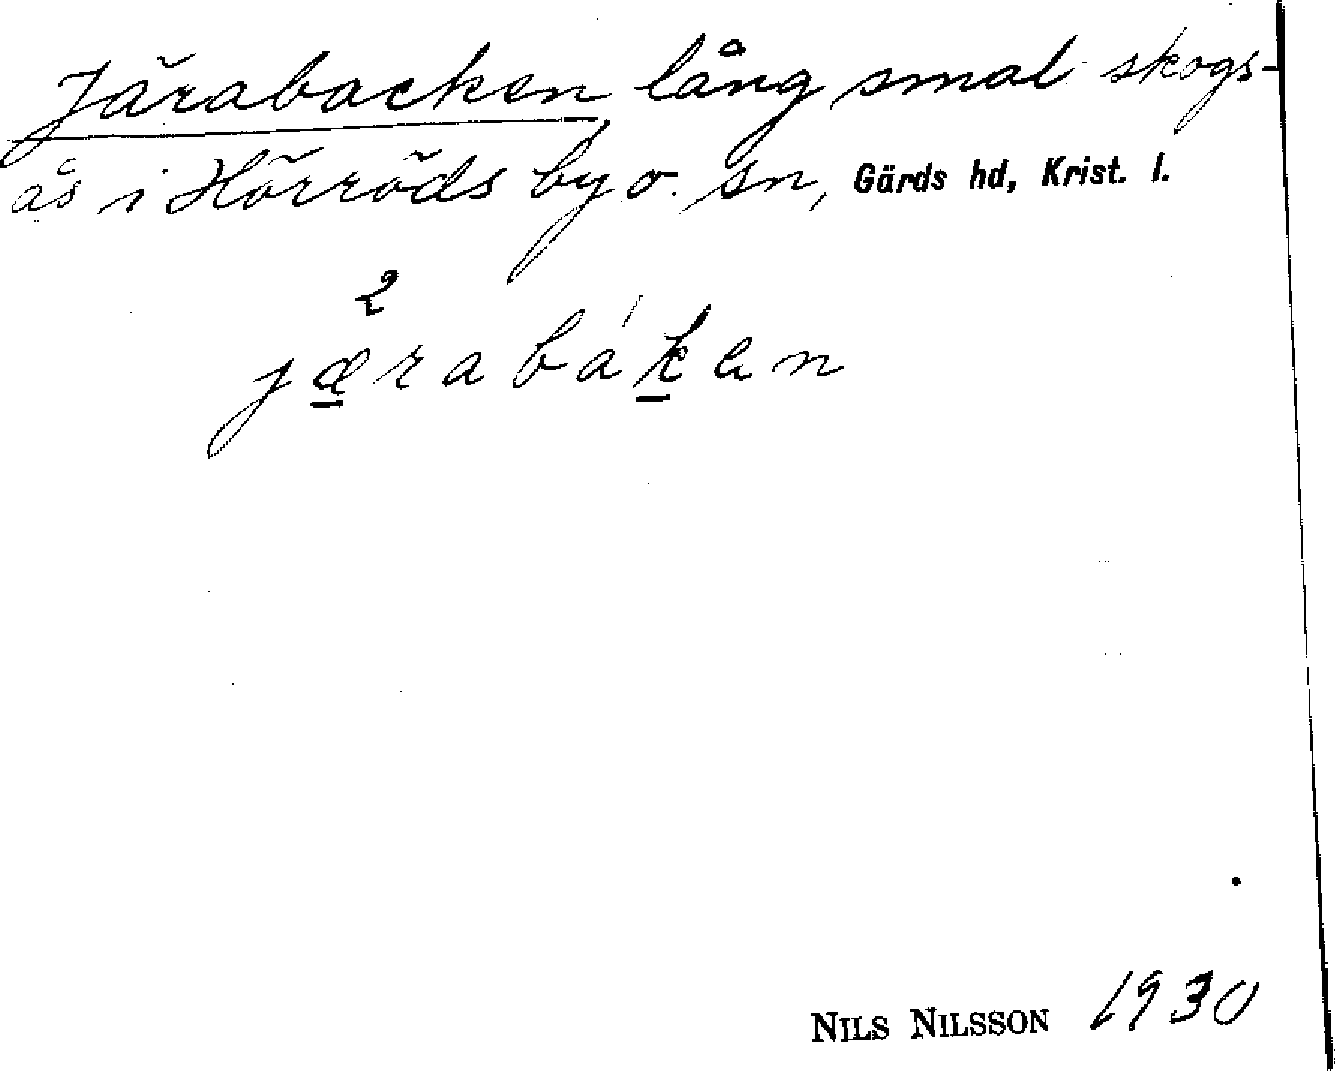 Järabacken lång smal skogs-
ås i Hörröds by o. sn, Gärds hd, Krist. l.
2
jæraba'ken
NILS NILSSON 1930